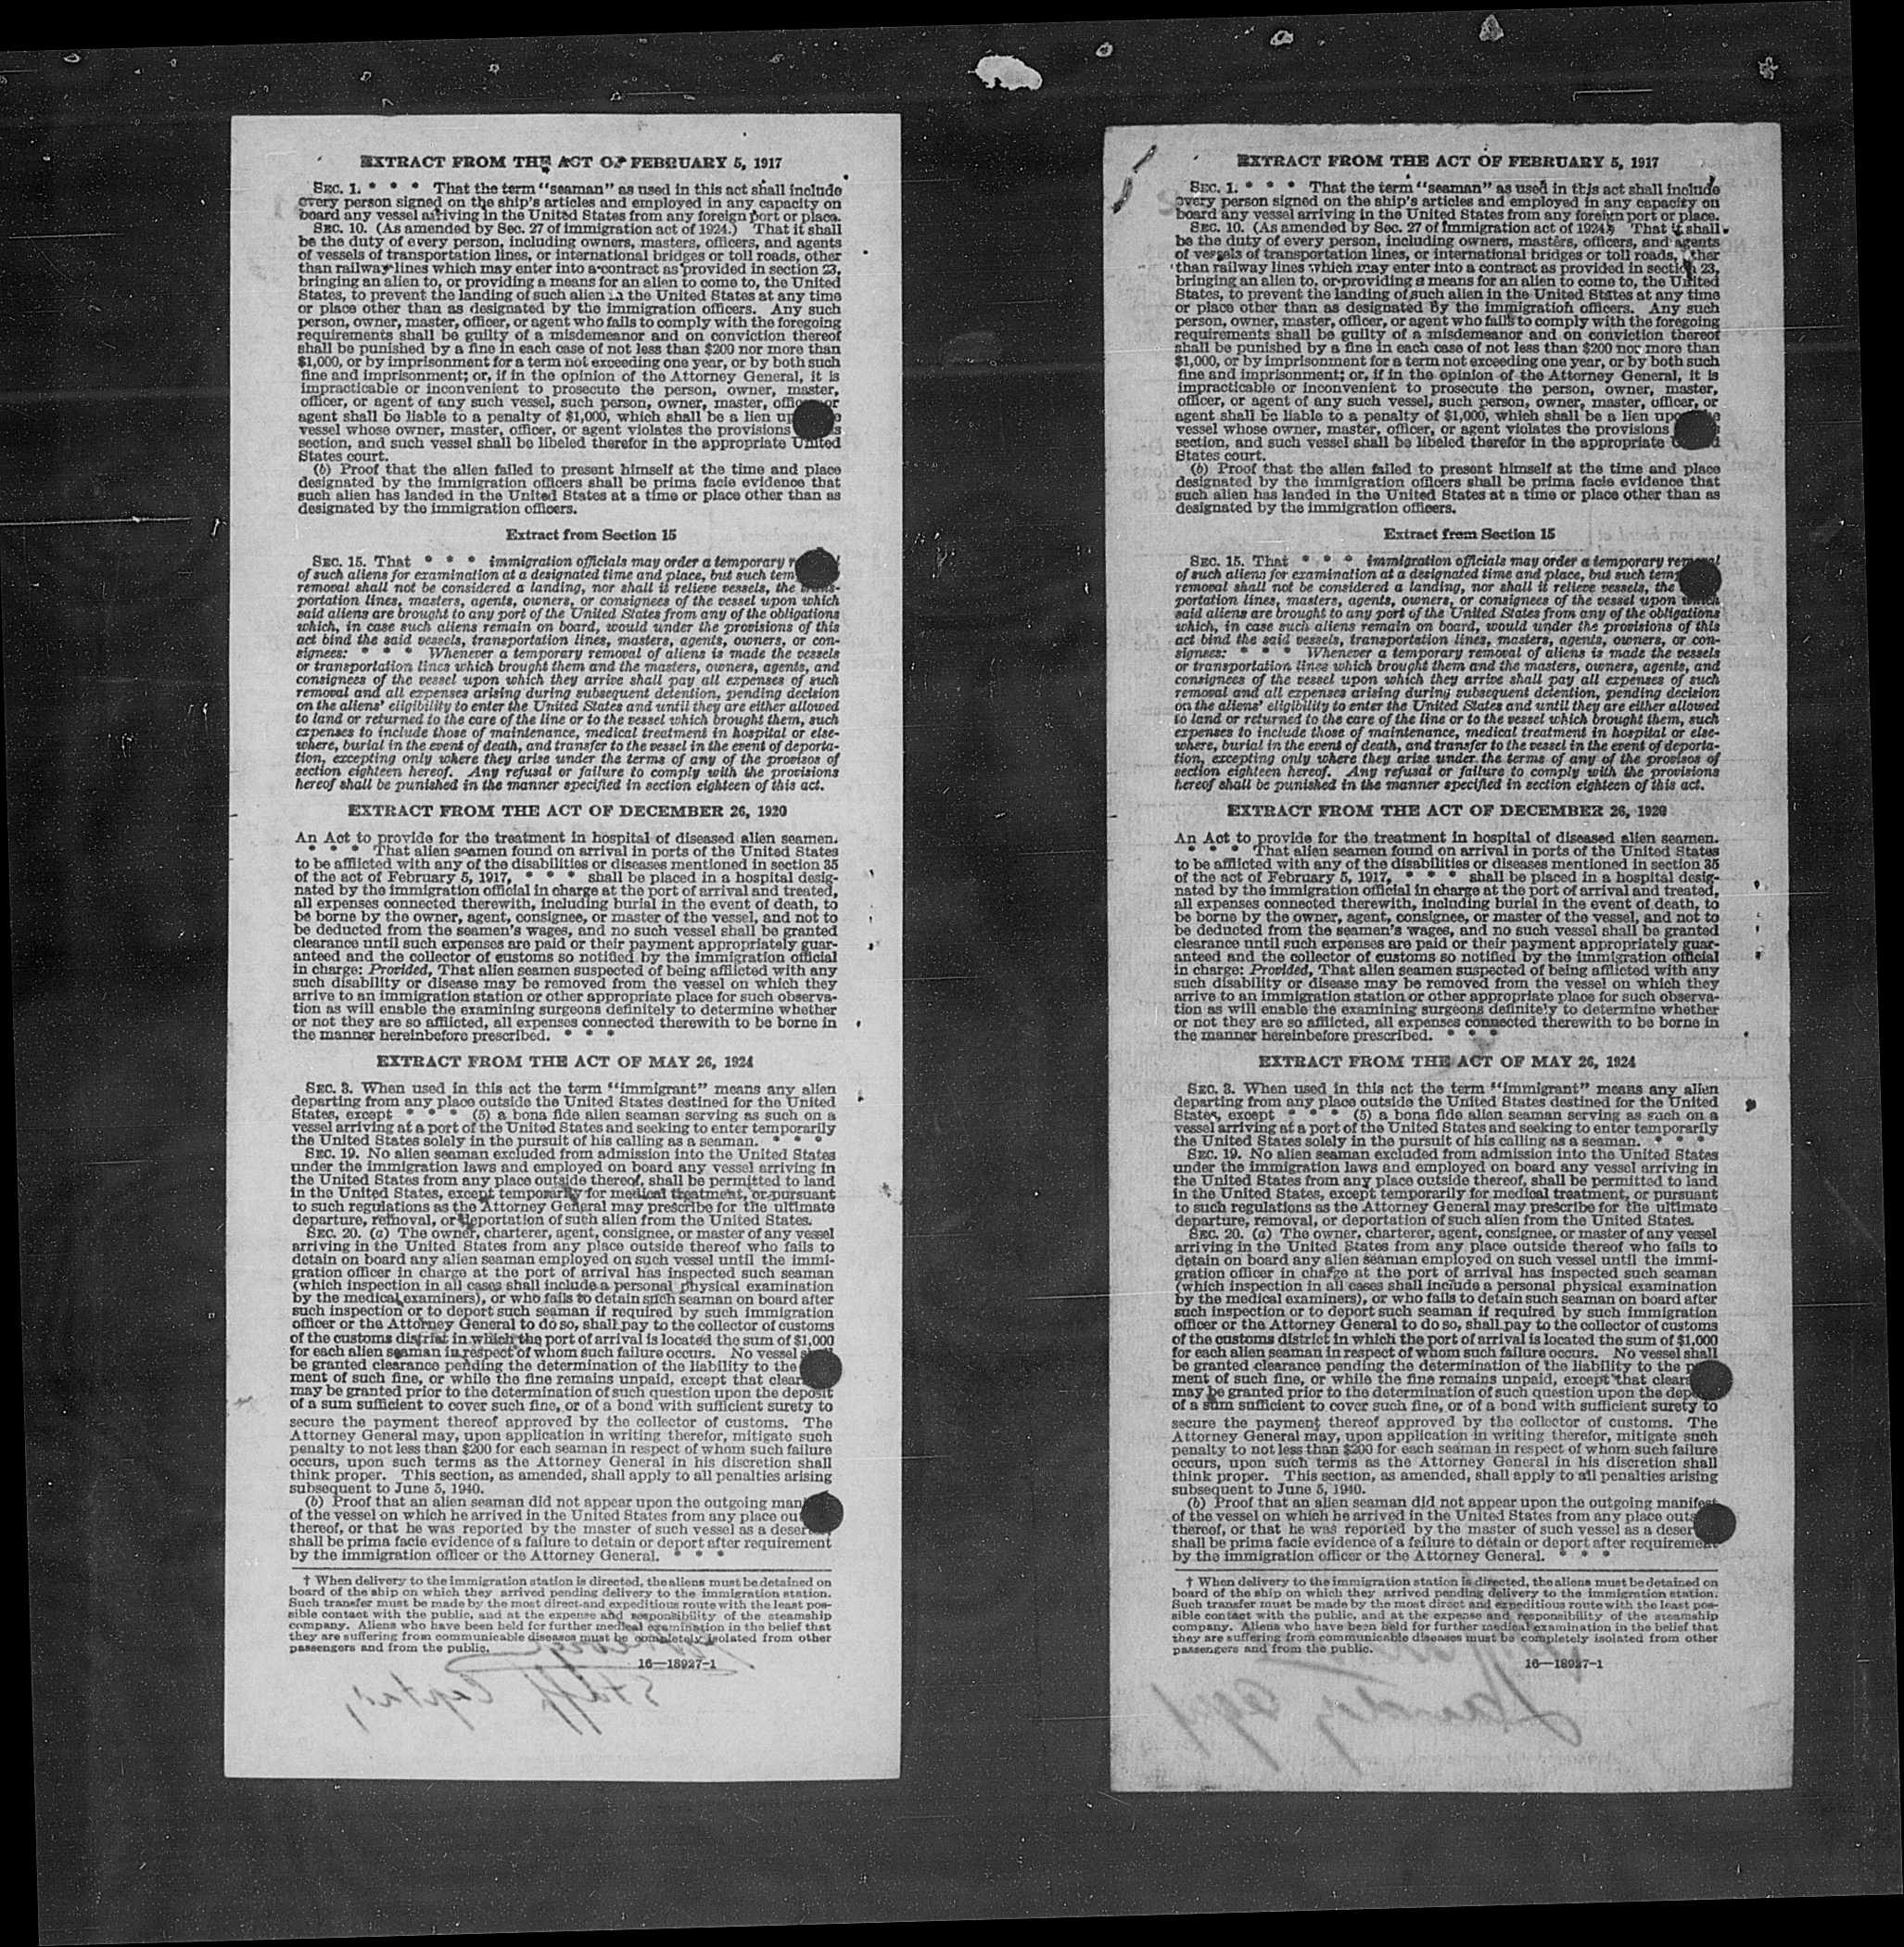 EXTRACT FROM THE ACT OF FEBRUARY 5, 1917
SEC. 1. * * * That the term "seaman" as used in this act shall include
every person signed on the ship's articles and employed in any capacity on
board any vessel arriving in the United States from any foreign port or place.
SEC. 10. (As amended by Sec. 27 of immigration act of 1924.) That it shall
be the duty of every person, including owners, masters, officers, and agents
of vessels of transportation lines, or international bridges or toll roads, other
than railway lines which may enter into a contract as provided in section 23,
bringing an alien to, or providing a means for an alien to come to, the United
States, to prevent the landing of such alien in the United States at any time
or place other than as designated by the immigration officers. Any such
person, owner, master, officer, or agent who fails to comply with the foregoing
requirements shall be guilty of a misdemeanor and on conviction thereof
shall be punished by a fine in each case of not less than $200 nor more than
$1,000, or by imprisonment for a term not exceeding one year, or by both such
fine and imprisonment; or, if in the opinion of the Attorney General, it is
impracticable or inconvenient to prosecute the person, owner, master,
officer, or agent of any such vessel, such person, owner, master, officer or
agent shall be liable to a penalty of $1,000, which shall be a lien
vessel whose owner, master, officer, or agent violates the provisions
section, and such vessel shall be libeled therefor in the appropriate United
States court.
(b) Proof that the alien failed to present himself at the time and place
designated by the immigration officers shall be prima facie evidence that
such alien has landed in the United States at a time or place other than as
designated by the immigration officers.
Extract from Section 15
SEC. 15. That * * * immigration officials may order a temporary
of such aliens for examination at a designated time and place, but such
removal shall not be considered a landing, nor shall it relieve vessels, the trans-
portation lines, masters, agents, owners, or consignees of the vessel upon which
said aliens are brought to any port of the United States from any of the obligations
which, in case such aliens remain on board, would under the provisions of this
act bind the said vessels, transportation lines, masters, agents, owners, or con-
signees: * * * Whenever a temporary removal of aliens is made the vessels
or transportation lines which brought them and the masters, owners, agents, and
consignees of the vessel upon which they arrive shall pay all expenses of such
removal and all expenses arising during subsequent detention, pending decision
on the aliens' eligibility to enter the United States and until they are either allowed
to land or returned to the care of the line or to the vessel which brought them, such
expenses to include those of maintenance, medical treatment in hospital or else-
where, burial in the event of death, and transfer to the vessel in the event of deporta-
tion, excepting only where they arise under the terms of any of the provisos of
section eighteen hereof. Any refusal or failure to comply with the provisions
hereof shall be punished in the manner specified in section eighteen of this act.
EXTRACT FROM THE ACT OF DECEMBER 26, 1920
An Act to provide for the treatment in hospital of diseased alien seamen.
* * * That alien seamen found on arrival in ports of the United States
to be afflicted with any of the disabilities or diseases mentioned in section 35
of the act of February 5, 1917, * * * shall be placed in a hospital desig-
nated by the immigration official in charge at the port of arrival and treated,
all expenses connected therewith, including burial in the event of death, to
be borne by the owner, agent, consignee, or master of the vessel, and not to
be deducted from the seamen's wages, and no such vessel shall be granted
clearance until such expenses are paid or their payment appropriately guar-
anteed and the collector of customs so notified by the immigration official
in charge: Provided, That alien seamen suspected of being afflicted with any
such disability or disease may be removed from the vessel on which they
arrive to an immigration station or other appropriate place for such observa-
tion as will enable the examining surgeons definitely to determine whether
or not they are so afflicted, all expenses connected therewith to be borne in
the manner hereinbefore prescribed. * * *
EXTRACT FROM THE ACT OF MAY 26, 1924
SEC. 3. When used in this act the term "immigrant" means any alien
departing from any place outside the United States destined for the United
States, except * * * (5) a bona fide alien seaman serving as such on a
vessel arriving at a port of the United States and seeking to enter temporarily
the United States solely in the pursuit of his calling as a seaman. * * *
SEC. 19. No alien seaman excluded from admission into the United States
under the immigration laws and employed on board any vessel arriving in
the United States from any place outside thereof, shall be permitted to land
in the United States, except temporarily for medical treatment, or pursuant
to such regulations as the Attorney General may prescribe for the ultimate
departure, removal, or deportation of such alien from the United States.
SEC. 20. (a) The owner, charterer, agent, consignee, or master of any vessel
arriving in the United States from any place outside thereof who fails to
detain on board any alien seaman employed on such vessel until the immi-
gration officer in charge at the port of arrival has inspected such seaman
(which inspection in all cases shall include a personal physical examination
by the medical examiners), or who fails to detain such seaman on board after
such inspection or to deport such seaman if required by such immigration
officer or the Attorney General to do so, shall pay to the collector of customs
of the customs district in which the port of arrival is located the sum of $1,000
for each alien seaman in respect of whom such failure occurs. No vessel shall
be granted clearance pending the determination of the liability to the
ment of such fine, or while the fine remains unpaid, except that
may be granted prior to the determination of such question upon the deposit
of a sum sufficient to cover such fine, or of a bond with sufficient surety to
secure the payment thereof approved by the collector of customs. The
Attorney General may, upon application in writing therefor, mitigate such
penalty to not less than $200 for each seaman in respect of whom such failure
occurs, upon such terms as the Attorney General in his discretion shall
think proper. This section, as amended, shall apply to all penalties arising
subsequent to June 5, 1940.
(b) Proof that an alien seaman did not appear upon the outgoing
of the vessel on which he arrived in the United States from any place
thereof, or that he was reported by the master of such vessel as a
shall be prima facie evidence of a failure to detain or deport after requirement
by the immigration officer or the Attorney General. * * *
† When delivery to the immigration station is directed, the aliens must be detained on
board of the ship on which they arrived pending delivery to the immigration station.
Such transfer must be made by the most direct and expeditious route with the least pos-
sible contact with the public, and at the expense and responsibility of the steamship
company. Aliens who have been held for further medical examination in the belief that
they are suffering from communicable diseases must be completely isolated from other
passengers and from the public.
16—18927-1
EXTRACT FROM THE ACT OF FEBRUARY 5, 1917
SEC. 1. * * * That the term "seaman" as used in this act shall include
every person signed on the ship's articles and employed in any capacity on
board any vessel arriving in the United States from any foreign port or place.
SEC. 10. (As amended by Sec. 27 of immigration act of 1924) That it shall
be the duty of every person, including owners, masters, officers, and agents
of vessels of transportation lines, or international bridges or toll roads, other
than railway lines which may enter into a contract as provided in section 23,
bringing an alien to, or providing a means for an alien to come to, the United
States, to prevent the landing of such alien in the United States at any time
or place other than as designated by the immigration officers. Any such
person, owner, master, officer, or agent who fails to comply with the foregoing
requirements shall be guilty of a misdemeanor and on conviction thereof
shall be punished by a fine in each case of not less than $200 nor more than
$1,000, or by imprisonment for a term not exceeding one year, or by both such
fine and imprisonment; or, if in the opinion of the Attorney General, it is
impracticable or inconvenient to prosecute the person, owner, master,
officer, or agent of any such vessel, such person, owner, master, officer, or
agent shall be liable to a penalty of $1,000, which shall be a lien upon the
vessel whose owner, master, officer, or agent violates the provisions
section, and such vessel shall be libeled therefor in the appropriate
States court.
(b) Proof that the alien failed to present himself at the time and place
designated by the immigration officers shall be prima facie evidence that
such alien has landed in the United States at a time or place other than as
designated by the immigration officers.
Extract from Section 15
SEC. 15. That * * * immigration officials may order a temporary removal
of such aliens for examination at a designated time and place, but such
removal shall not be considered a landing, nor shall it relieve vessels, the
portation lines, masters, agents, owners, or consignees of the vessel upon which
said aliens are brought to any port of the United States from any of the obligations
which, in case such aliens remain on board, would under the provisions of this
act bind the said vessels, transportation lines, masters, agents, owners, or con-
signees: * * * Whenever a temporary removal of aliens is made the vessels
or transportation lines which brought them and the masters, owners, agents, and
consignees of the vessel upon which they arrive shall pay all expenses of such
removal and all expenses arising during subsequent detention, pending decision
on the aliens' eligibility to enter the United States and until they are either allowed
to land or returned to the care of the line or to the vessel which brought them, such
expenses to include those of maintenance, medical treatment in hospital or else-
where, burial in the event of death, and transfer to the vessel in the event of deporta-
tion, excepting only where they arise under the terms of any of the provisos of
section eighteen hereof. Any refusal or failure to comply with the provisions
hereof shall be punished in the manner specified in section eighteen of this act.
EXTRACT FROM THE ACT OF DECEMBER 26, 1920
An Act to provide for the treatment in hospital of diseased alien seamen.
* * * That alien seamen found on arrival in ports of the United States
to be afflicted with any of the disabilities or diseases mentioned in section 35
of the act of February 5, 1917, * * * shall be placed in a hospital desig-
nated by the immigration official in charge at the port of arrival and treated,
all expenses connected therewith, including burial in the event of death, to
be borne by the owner, agent, consignee, or master of the vessel, and not to
be deducted from the seamen's wages, and no such vessel shall be granted
clearance until such expenses are paid or their payment appropriately guar-
anteed and the collector of customs so notified by the immigration official
in charge: Provided, That alien seamen suspected of being afflicted with any
such disability or disease may be removed from the vessel on which they
arrive to an immigration station or other appropriate place for such observa-
tion as will enable the examining surgeons definitely to determine whether
or not they are so afflicted, all expenses connected therewith to be borne in
the manner hereinbefore prescribed. * * *
EXTRACT FROM THE ACT OF MAY 26, 1924
SEC. 3. When used in this act the term "immigrant" means any alien
departing from any place outside the United States destined for the United
States, except * * * (5) a bona fide alien seaman serving as such on a
vessel arriving at a port of the United States and seeking to enter temporarily
the United States solely in the pursuit of his calling as a seaman. * * *
SEC. 19. No alien seaman excluded from admission into the United States
under the immigration laws and employed on board any vessel arriving in
the United States from any place outside thereof, shall be permitted to land
in the United States, except temporarily for medical treatment, or pursuant
to such regulations as the Attorney General may prescribe for the ultimate
departure, removal, or deportation of such alien from the United States.
SEC. 20. (a) The owner, charterer, agent, consignee, or master of any vessel
arriving in the United States from any place outside thereof who fails to
detain on board any alien seaman employed on such vessel until the immi-
gration officer in charge at the port of arrival has inspected such seaman
(which inspection in all cases shall include a personal physical examination
by the medical examiners), or who fails to detain such seaman on board after
such inspection or to deport such seaman if required by such immigration
officer or the Attorney General to do so, shall pay to the collector of customs
of the customs district in which the port of arrival is located the sum of $1,000
for each alien seaman in respect of whom such failure occurs. No vessel shall
be granted clearance pending the determination of the liability to the
ment of such fine, or while the fine remains unpaid, except that
may be granted prior to the determination of such question upon the
of a sum sufficient to cover such fine, or of a bond with sufficient surety to
secure the payment thereof approved by the collector of customs. The
Attorney General may, upon application in writing therefor, mitigate such
penalty to not less than $200 for each seaman in respect of whom such failure
occurs, upon such terms as the Attorney General in his discretion shall
think proper. This section, as amended, shall apply to all penalties arising
subsequent to June 5, 1940.
(b) Proof that an alien seaman did not appear upon the outgoing manifest
of the vessel on which he arrived in the United States from any place
thereof, or that he was reported by the master of such vessel as a
shall be prima facie evidence of a failure to detain or deport after requirement
by the immigration officer or the Attorney General. * * *
† When delivery to the immigration station is directed, the aliens must be detained on
board of the ship on which they arrived pending delivery to the immigration station.
Such transfer must be made by the most direct and expeditious route with the least pos-
sible contact with the public, and at the expense and responsibility of the steamship
company. Aliens who have been held for further medical examination in the belief that
they are suffering from communicable diseases must be completely isolated from other
passengers and from the public.
16—18927-1